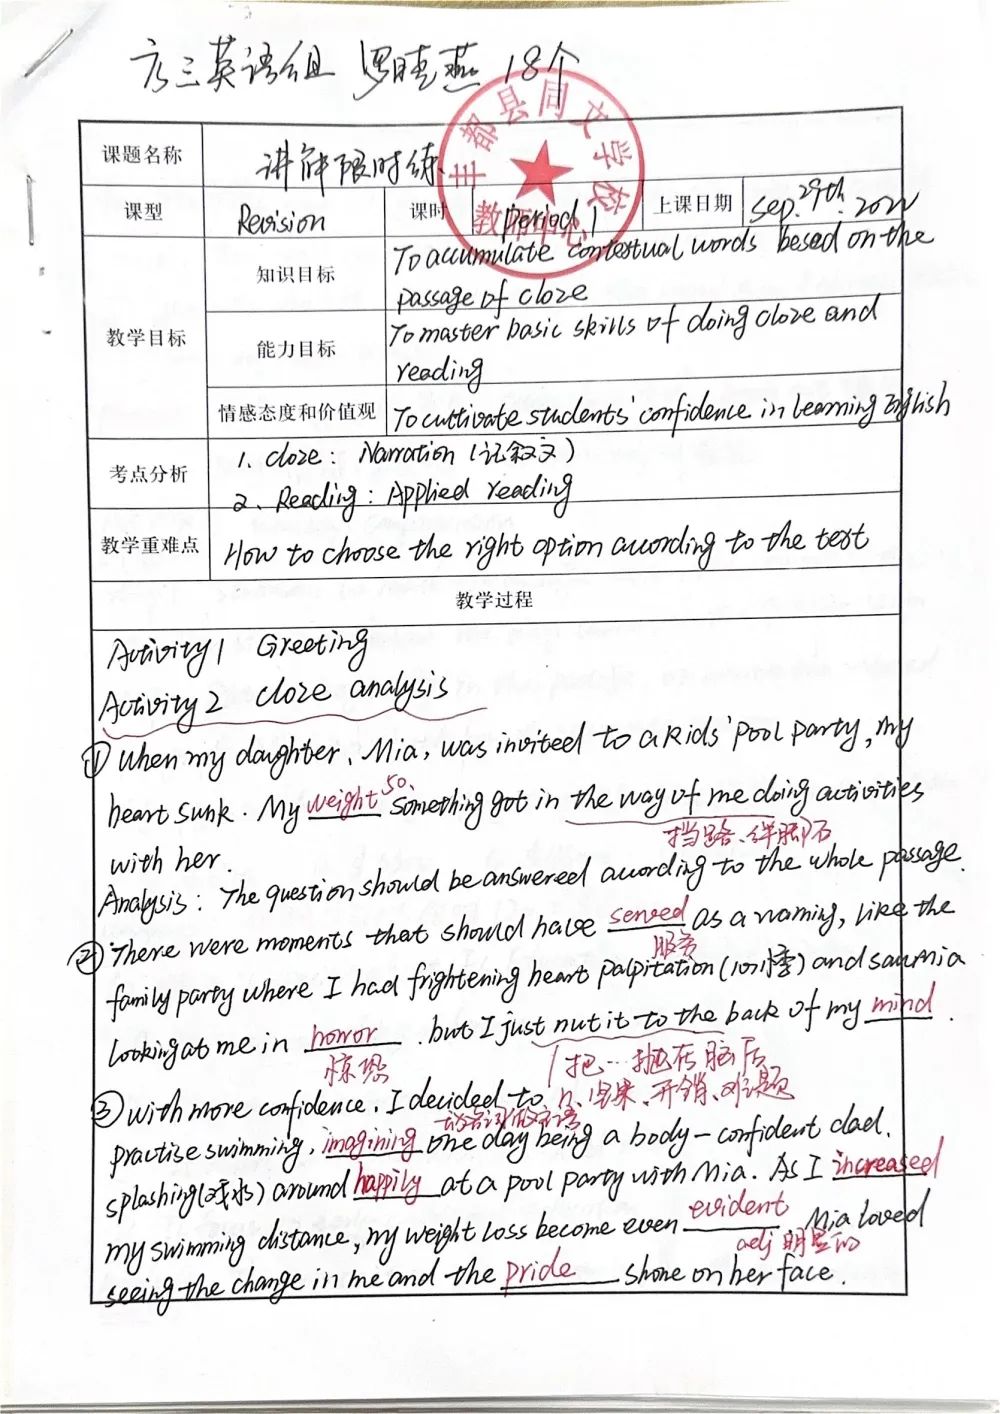 高三英语组 罗晓燕 18个
丰都县同文学校
教师中心
课题名称 讲解限时练
课型 Revision 课时 Period 1 上课日期 Sep. 29th. 2022
教学目标 知识目标 To accumulate contextual words besed on the
passage of cloze
能力目标 To master basic skills of doing cloze and
reading
情感态度和价值观 To cultivate students' confidence in learning English
考点分析 1. cloze: Narration (记叙文)
2. Reading: Applied reading
教学重难点 How to choose the right option according to the text
教学过程
Activity 1 Greeting
Activity 2 cloze analysis
① When my daughter, Mia, was invited to a kids' pool party, my
heart sunk. My weight so. something got in the way of me doing activities
挡路、绊脚石
with her.
Analysis: The question should be answered according to the whole passage.
② There were moments that should have served as a warning, like the
服务
family party where I had frightening heart palpitation (心悸) and saw Mia
looking at me in horror. but I just nut it to the back of my mind.
惊恐 把…抛在脑后
n. 坚果、开销、难题
③ With more confidence, I decided to
practise swimming, imagining one day being a body-confident dad.
splashing(戏水) around happily at a pool party with Mia. As I increased
my swimming distance, my weight loss become even evident Mia loved
adj 明显的
seeing the change in me and the pride shone on her face.